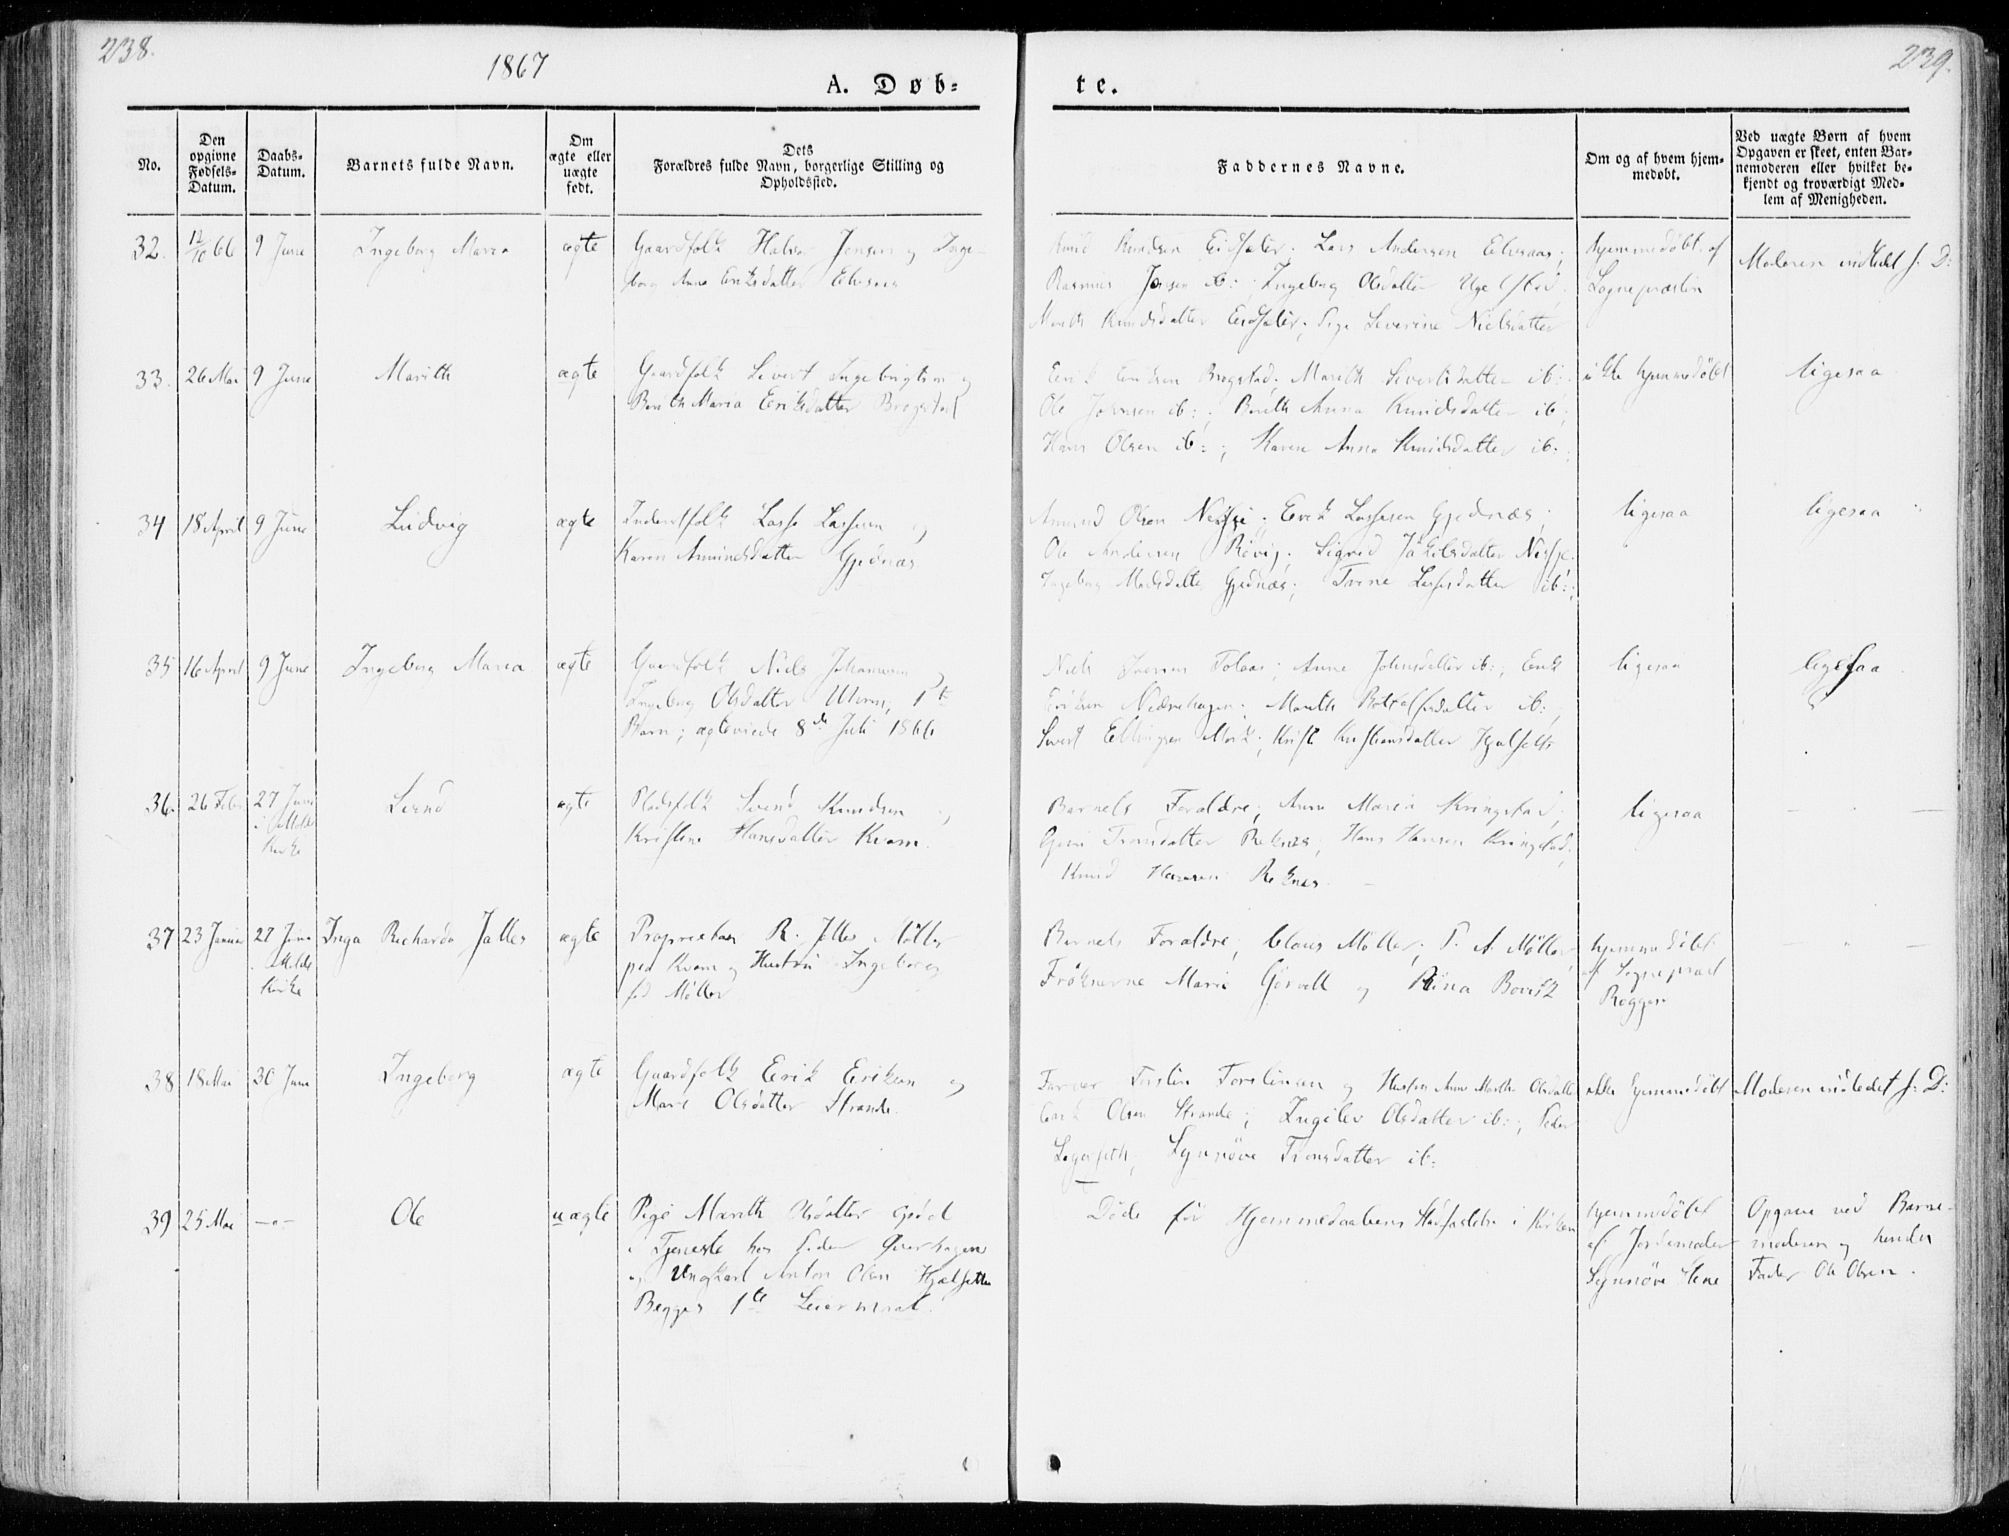 238.
1867
A. Døb-
te.
239.
No.
Den opgivne Fødsels-Datum.
Daabs-Datum.
Barnets fulde Navn.
Om ægte eller uægte født.
Dets Forældres fulde Navn, borgerlige Stilling og Opholdssted.
Faddernes Navne.
Om og af hvem hjemmedøbt.
Ved uægte Børn af hvem Opgaven er skeet, enten Barnemoderen eller hvilket bekjendt og troværdigt Medlem af Menigheden.
32. 12/10 66 9 June Ingeborg Maria ægte
Gaardfolk Halvor Jensen og Inge-
borg Anna Eriksdatter Elvsaas
Knud Knudsen Eidsæter; Lars Andersen Elvsaas;
Rasmus Jensen ib:; Ingeborg Olsdatter Ugelstad;
Marith Knudsdatter Eidsæter; Pige Severine Nielsdatter
hjemmedöbt af
Sognepræsten
Moderen indledet s. D:
33. 26 Mai 9 June Marith ægte
Gaardfolk Sivert Ingebrigtsen og
Berith Maria Eriksdatter Bregstad
Erik Eriksen Bregstad; Marith Sivertsdatter ib:
Ole Johnsen ib:; Berith Anna Knudsdatter ib;
Hans Olsen ib:; Karen Anna Knudsdatter ib:
ikke hjemmedöbt
ligesaa
34 18 April 9 June Ludvig ægte
Inderstfolk Lasse Lassesen og
Karen Amundsdatter Gjednæs
Amund Olsen Nesje; Erik Lassesen Gjednæs;
Ole Andersen Rövig; Sigrid Jakobsdatter Nesje
Ingeborg Madsdatter Gjednæs; Trine Lassesdatter ib:;
ligesaa
ligesaa
35 16 April 9 June Ingeborg Maria ægte
Gaardfolk Niels Johannesen
Ingeborg Olsdatter 1te
Barn; ægteviede 8de Juli 1866
Niels Iversen Tolaas; Anne Johnsdatter ib:; Erik
Eriksen Nedrehagen; Marith Botolfsdatter ib:,
Sivert Ellingsen Mork; Kristiansdatter Hjelset
ligesaa
ligesaa
36. 26 Febr 27 Juni i Molde Kirke Svend ægte
Pladsfolk Svend Knudsen og
Kristine Hansdatter Kvam.
Barnets Forældre; Anne Maria Kringstad;
Tronsdatter Reknes; Hans Hansen Kringstad;
Knud Hansen Reknes.
ligesaa
37 23 Januar 27 Juni Molde Kirke Inga Richarda Jalles ægte
Proprietær R. Jalles Möller
paa Kvam og Hustru Ingeborg
fød Møller
Barnets Forældre; Claus Möller; P. A. Möller,
Frøknerne Marie Görvell og Rina
hjemmedöbt
af Sognepræst
Rogge
38 18 Mai 30 Juni Ingeborg ægte
Gaardfolk Erik Eriksen og
Mari Olsdatter Strande.
Torstin Torstinsen og Hustru Anne Marth Olsdatter
Olsen Strande; Ingelev Olsdatter ib:; Peder
Synnöve Tronsdatter ib:
ikke hjemmedöbt
Moderen indledet s. D:
39 25 Mai —"— Ole uægte
Pige Marith Olsdatter
i Tjeneste hos Peder
og Ungkarl Anton Olsen Hjelset
Begges 1te Leiermaal.
Döde för Hjemmedaabens Stadfæstelse i Kirken
hjemmedöbt
af Jordemoder
Synnöve
Opgave ved Barne-
moderen og hendes
Fader Ole Olsen.